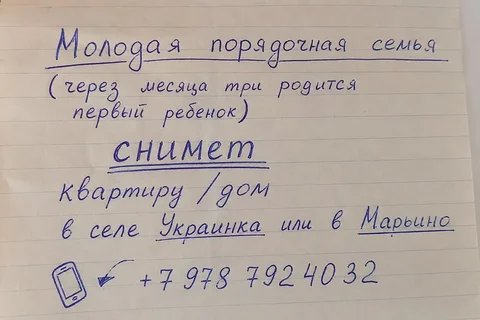 Молодая порядочная семья
(через месяца три родится
первый ребенок)
снимет
квартиру / дом
в селе Украинка или в Марьино
+7 978 792 40 32